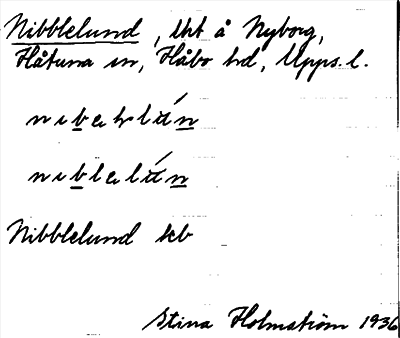 Nibblelund, lht å Nyborg,
Håtuna sn, Håbo hd, Upps. l.
Nibblelund kb
Stina Holmström 1936